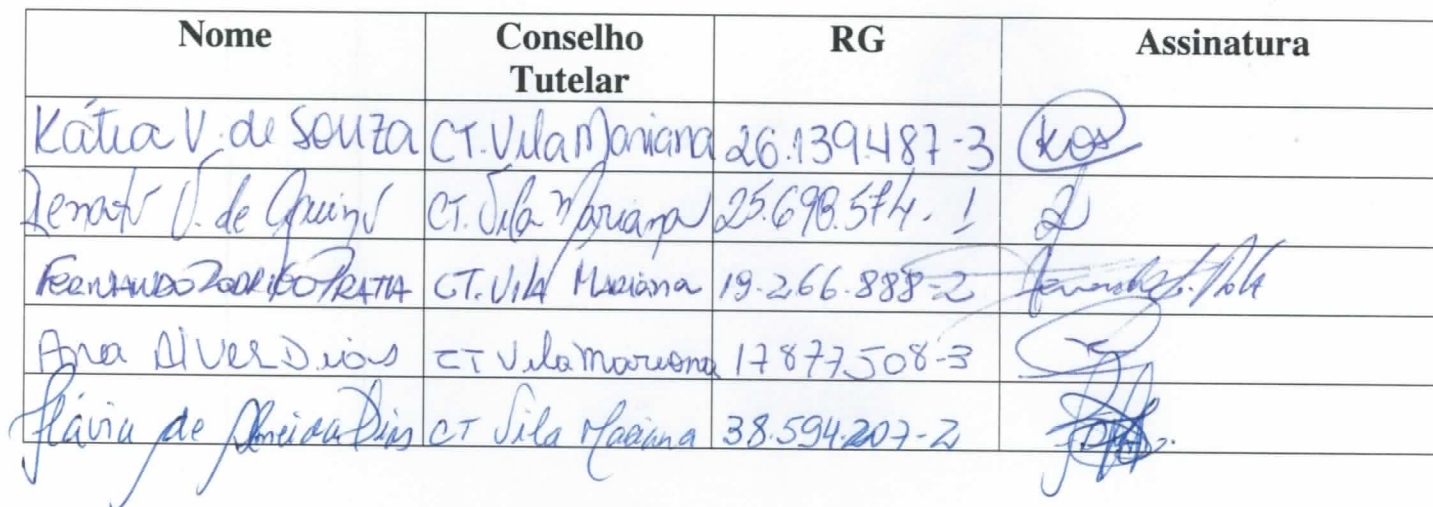 Nome Conselho Tutelar RG Assinatura
Kátia V. de Souza CT. Vila Mariana 26.139.487-3
Renato V. de CT. Vila Mariana 25.698.574-1
FERNANDO RODRIGO PRATA CT. VILA Mariana 19.266.888-2
Ana Alves Dias CT Vila Mariana 17877508-3
Flávia de Almeida Dias CT Vila Mariana 38.594.207-2